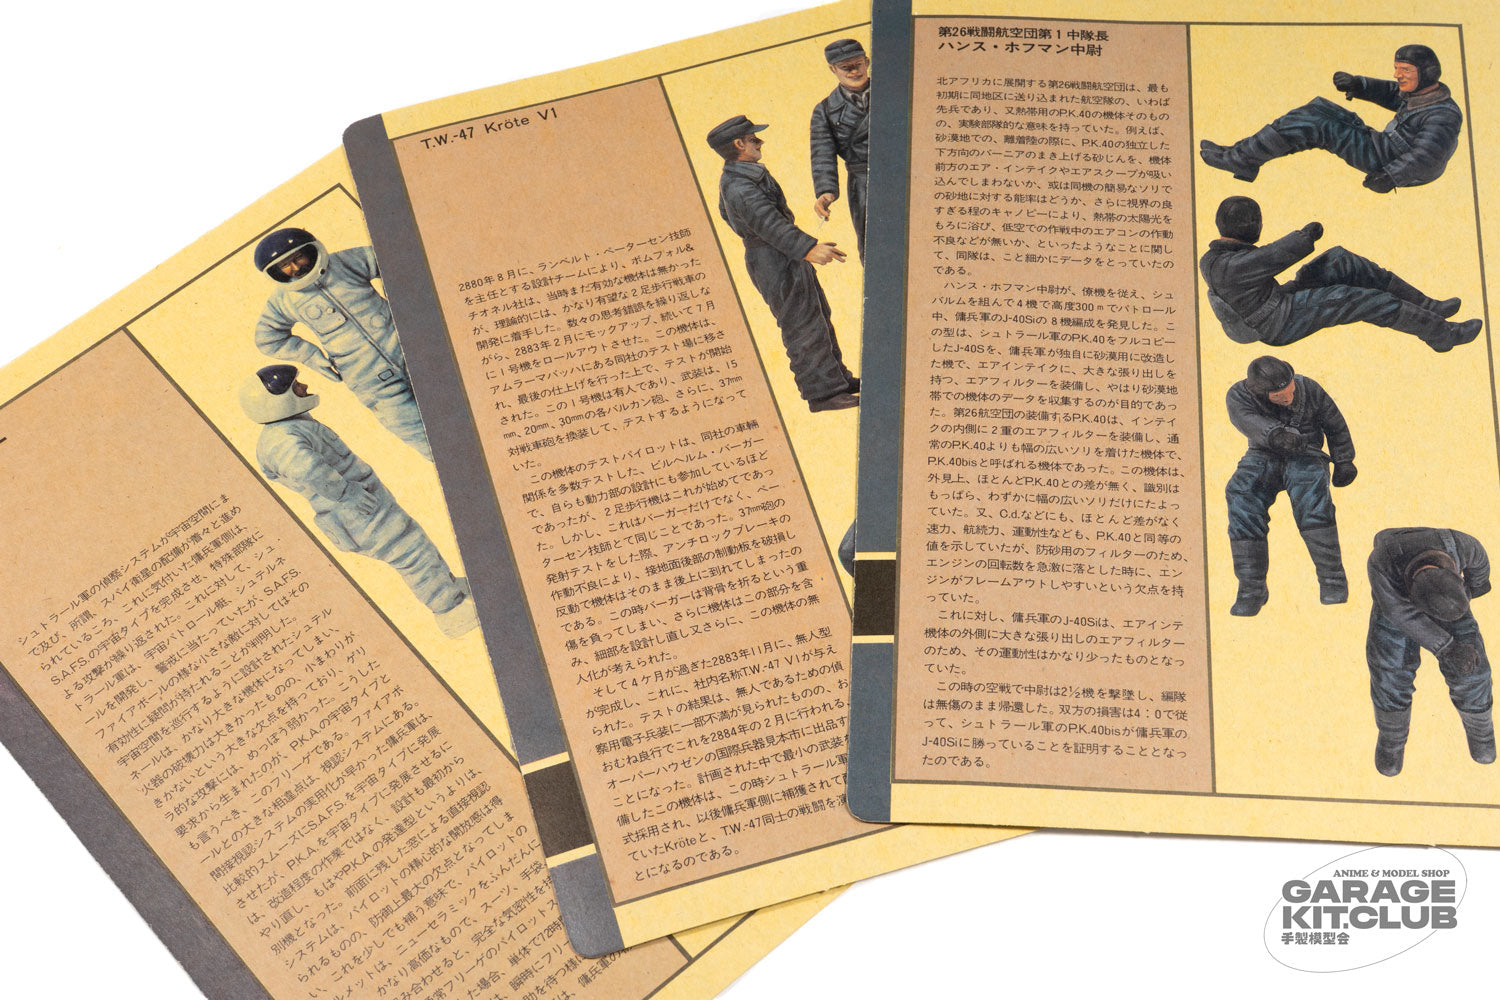 シュトラール軍の偵察システムが宇宙空間にま
で及び、所謂、スパイ衛星の配備が着々と進め
られているころ、これに気付いた傭兵軍側は、
S.A.F.S.の宇宙タイプを完成させ、特殊部隊に
よる攻撃が繰り返された。これに対して、シュ
トラール軍は、宇宙パトロール艇、シュテルネ
ールを開発し、警戒に当たっていたが、S.A.F.S.
ファイアボールの様な小さな敵に対してはその
有効性に疑問が持たれることが判明した。
宇宙空間を巡行するように設計されたシュテル
ネールは、かなり大きな機体になってしまい、
火器の破壊力は大きかったものの、小まわりが
きかないという大きな欠点を持っており、ゲリ
ラ的な攻撃には、めっぽう弱かった。こうした
要求から生まれたのが、P.K.A.の宇宙タイプと
も言うべき、このフリーゲである。ファイアボ
ールとの大きな相違点は、視認システムにある。
間接視認システムの実用化が早かった傭兵軍は、
比較的スムーズにS.A.F.S.を宇宙タイプに発展
させたが、P.K.A.を宇宙タイプに発展させるに
は、改造程度の作業ではなく、設計も最初から
やり直し、もはやP.K.A.の発達型というよりは、
別機となった。前面に残した窓による直接視認
システムは、パイロットの精神的な開放感は得
られるものの、防御上最大の欠点となってしま
い、これを少しでも補う意味で、パイロットの
ルメットは、ニューセラミックをふんだんに
かなり高価なもので、スーツ、手袋
組み合わせると、完全な気密性を持
通常フリーゲのパイロットス
した場合、単体で72時
は、瞬時にフリー
助を待つ様に
は、傭兵軍の
T.W.-47 Kröte V1
2880年8月に、ランベルト・ペーターセン技師
を主任とする設計チームにより、ボムフォル&
チオネル社は、当時まだ有効な機体は無かった
が、理論的には、かなり有望な2足歩行戦車の
開発に着手した。数々の思考錯誤を繰り返しな
がら、2883年2月にモックアップ、続いて7月
に1号機をロールアウトさせた。この機体は、
アムラーマバッハにある同社のテスト場に移さ
れ、最後の仕上げを行った上で、テストが開始
された。この1号機は有人であり、武装は、15
mm、20mm、30mmの各バルカン砲、さらに、37mm
対戦車砲を換装して、テストするようになって
いた。
この機体のテストパイロットは、同社の車輛
関係を多数テストした、ビルヘルム・バーガー
で、自らも動力部の設計にも参加しているほど
であったが、2足歩行機はこれが始めてであっ
た。しかし、これはバーガーだけでなく、ペー
ターセン技師とて同じことであった。37mm砲の
発射テストをした際、アンチロックブレーキの
作動不良により、接地面後部の制動板を破損し
反動で機体はそのまま後上に倒れてしまったの
である。この時バーガーは背骨を折るという重
傷を負ってしまい、さらに機体はこの部分を含
み、細部を設計し直し又さらに、この機体の無
人化が考えられた。
そして4ケ月が過ぎた2883年11月に、無人型
が完成し、これに、社内名称T.W.-47 V1が与え
られた。テストの結果は、無人であるための偵
察用電子兵装に一部不満が見られたものの、お
おむね良行でこれを2884年の2月に行われる、
オーバーハウゼンの国際兵器見本市に出品す
ことになった。計画された中で最小の武装を
備したこの機体は、この時シュトラール軍
式採用され、以後傭兵軍側に捕獲されて
ていたKröteと、T.W.-47同士の戦闘を演
とになるのである。
第26戦闘航空団第1中隊長
ハンス・ホフマン中尉
北アフリカに展開する第26戦闘航空団は、最も
初期に同地区に送り込まれた航空隊の、いわば
先兵であり、又熱帯用のP.K.40の機体そのもの
の、実験部隊的な意味を持っていた。例えば、
砂漠地での、離着陸の際に、P.K.40の独立した
下方向のバーニアのまき上げる砂じんを、機体
前方のエア・インテイクやエアスクープが吸い
込んでしまわないか、或は同機の簡易なソリで
の砂地に対する能率はどうか、さらに視界の良
すぎる程のキャノピーにより、熱帯の太陽光を
もろに浴び、低空での作戦中のエアコンの作動
不良などが無いか、といったようなことに関し
て、同隊は、こと細かにデータをとっていたの
である。
ハンス・ホフマン中尉が、僚機を従え、シュ
バルムを組んで4機で高度300mでパトロール
中、傭兵軍のJ-40Siの8機編成を発見した。こ
の型は、シュトラール軍のP.K.40をフルコピー
したJ-40Sを、傭兵軍が独自に砂漠用に改造し
た機で、エアインテイクに、大きな張り出しを
持つ、エアフィルターを装備し、やはり砂漠地
帯での機体のデータを収集するのが目的であっ
た。第26航空団の装備するP.K.40は、インテイ
クの内側に2重のエアフィルターを装備し、通
常のP.K.40よりも幅の広いソリを着けた機体で、
P.K.40bisと呼ばれる機体であった。この機体は、
外見上、ほとんどP.K.40との差が無く、識別は
もっぱら、わずかに幅の広いソリだけにたよっ
ていた。又、C.d.などにも、ほとんど差がなく
速力、航続力、運動性なども、P.K.40と同等の
値を示していたが、防砂用のフィルターのため、
エンジンの回転数を急激に落とした時に、エン
ジンがフレームアウトしやすいという欠点を持
っていた。
これに対し、傭兵軍のJ-40Siは、エアインテ
機体の外側に大きな張り出しのエアフィルター
のため、その運動性はかなり少ったものとなっ
ていた。
この時の空戦で中尉は2½機を撃墜し、編隊
は無傷のまま帰還した。双方の損害は4:0で従
って、シュトラール軍のP.K.40bisが傭兵軍の
J-40Siに勝っていることを証明することとなっ
たのである。
ANIME & MODEL SHOP
GARAGE
KIT.CLUB
手製模型会